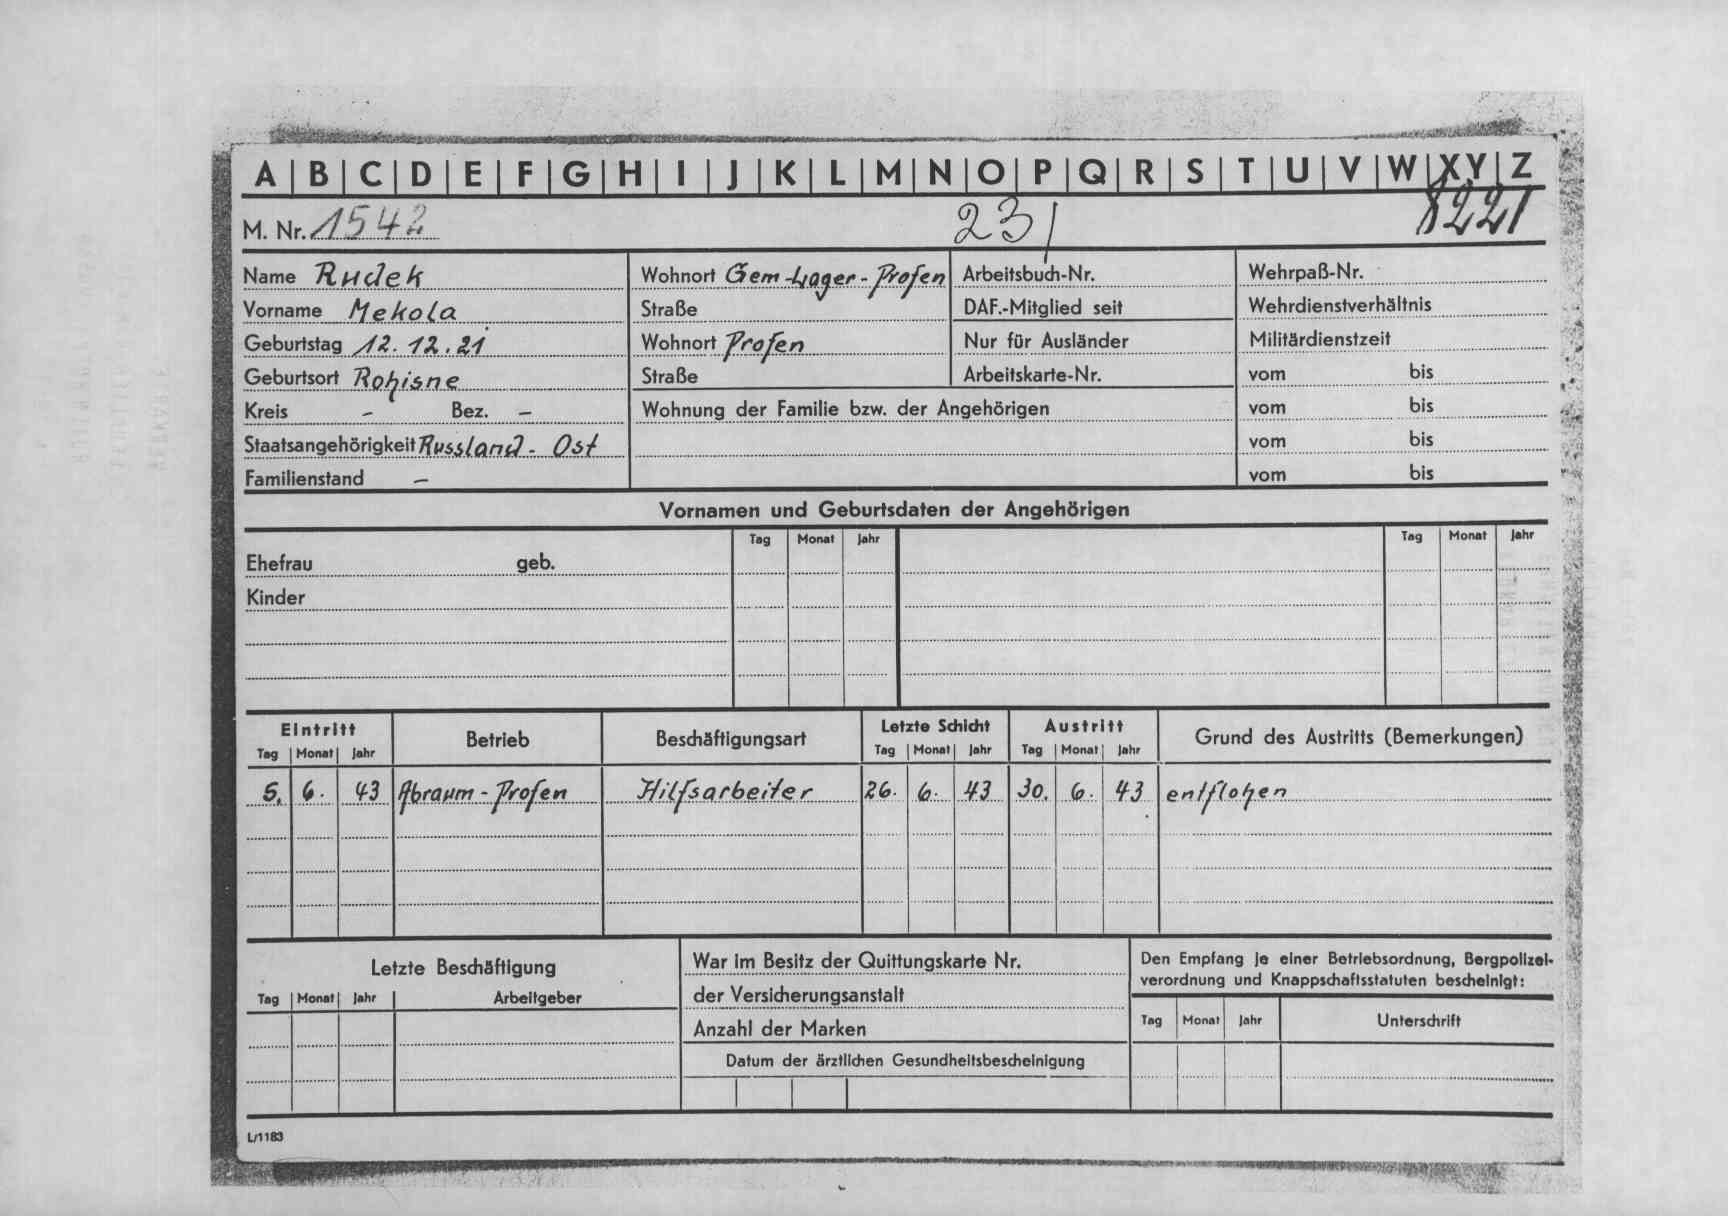 A | B | C | D | E | F | G | H | I | J | K | L | M | N | O | P | Q | R | S | T | U | V | W | X Y | Z
M. Nr. 1542 23 8221
Name Rudek Wohnort Gem-Lager-Profen Arbeitsbuch-Nr. Wehrpaß-Nr.
Vorname Mekola Straße DAF.-Mitglied seit Wehrdienstverhältnis
Geburtstag 12.12.21 Wohnort Profen Nur für Ausländer Militärdienstzeit
Geburtsort Rohisne Straße Arbeitskarte-Nr. vom bis
Kreis - Bez. - Wohnung der Familie bzw. der Angehörigen vom bis
Staatsangehörigkeit Russland - Ost vom bis
Familienstand - vom bis
Vornamen und Geburtsdaten der Angehörigen
Tag Monat Jahr Tag Monat Jahr
Ehefrau geb.
Kinder
Eintritt Betrieb Beschäftigungsart Letzte Schicht Austritt Grund des Austritts (Bemerkungen)
Tag Monat Jahr Tag Monat Jahr Tag Monat Jahr
5. 6. 43 Abraum-Profen Hilfsarbeiter 26. 6. 43 30. 6. 43 entflohen
Letzte Beschäftigung War im Besitz der Quittungskarte Nr. Den Empfang je einer Betriebsordnung, Bergpolizei-
verordnung und Knappschaftsstatuten bescheinigt:
Tag Monat Jahr Arbeitgeber der Versicherungsanstalt
Anzahl der Marken Tag Monat Jahr Unterschrift
Datum der ärztlichen Gesundheitsbescheinigung
L/1183